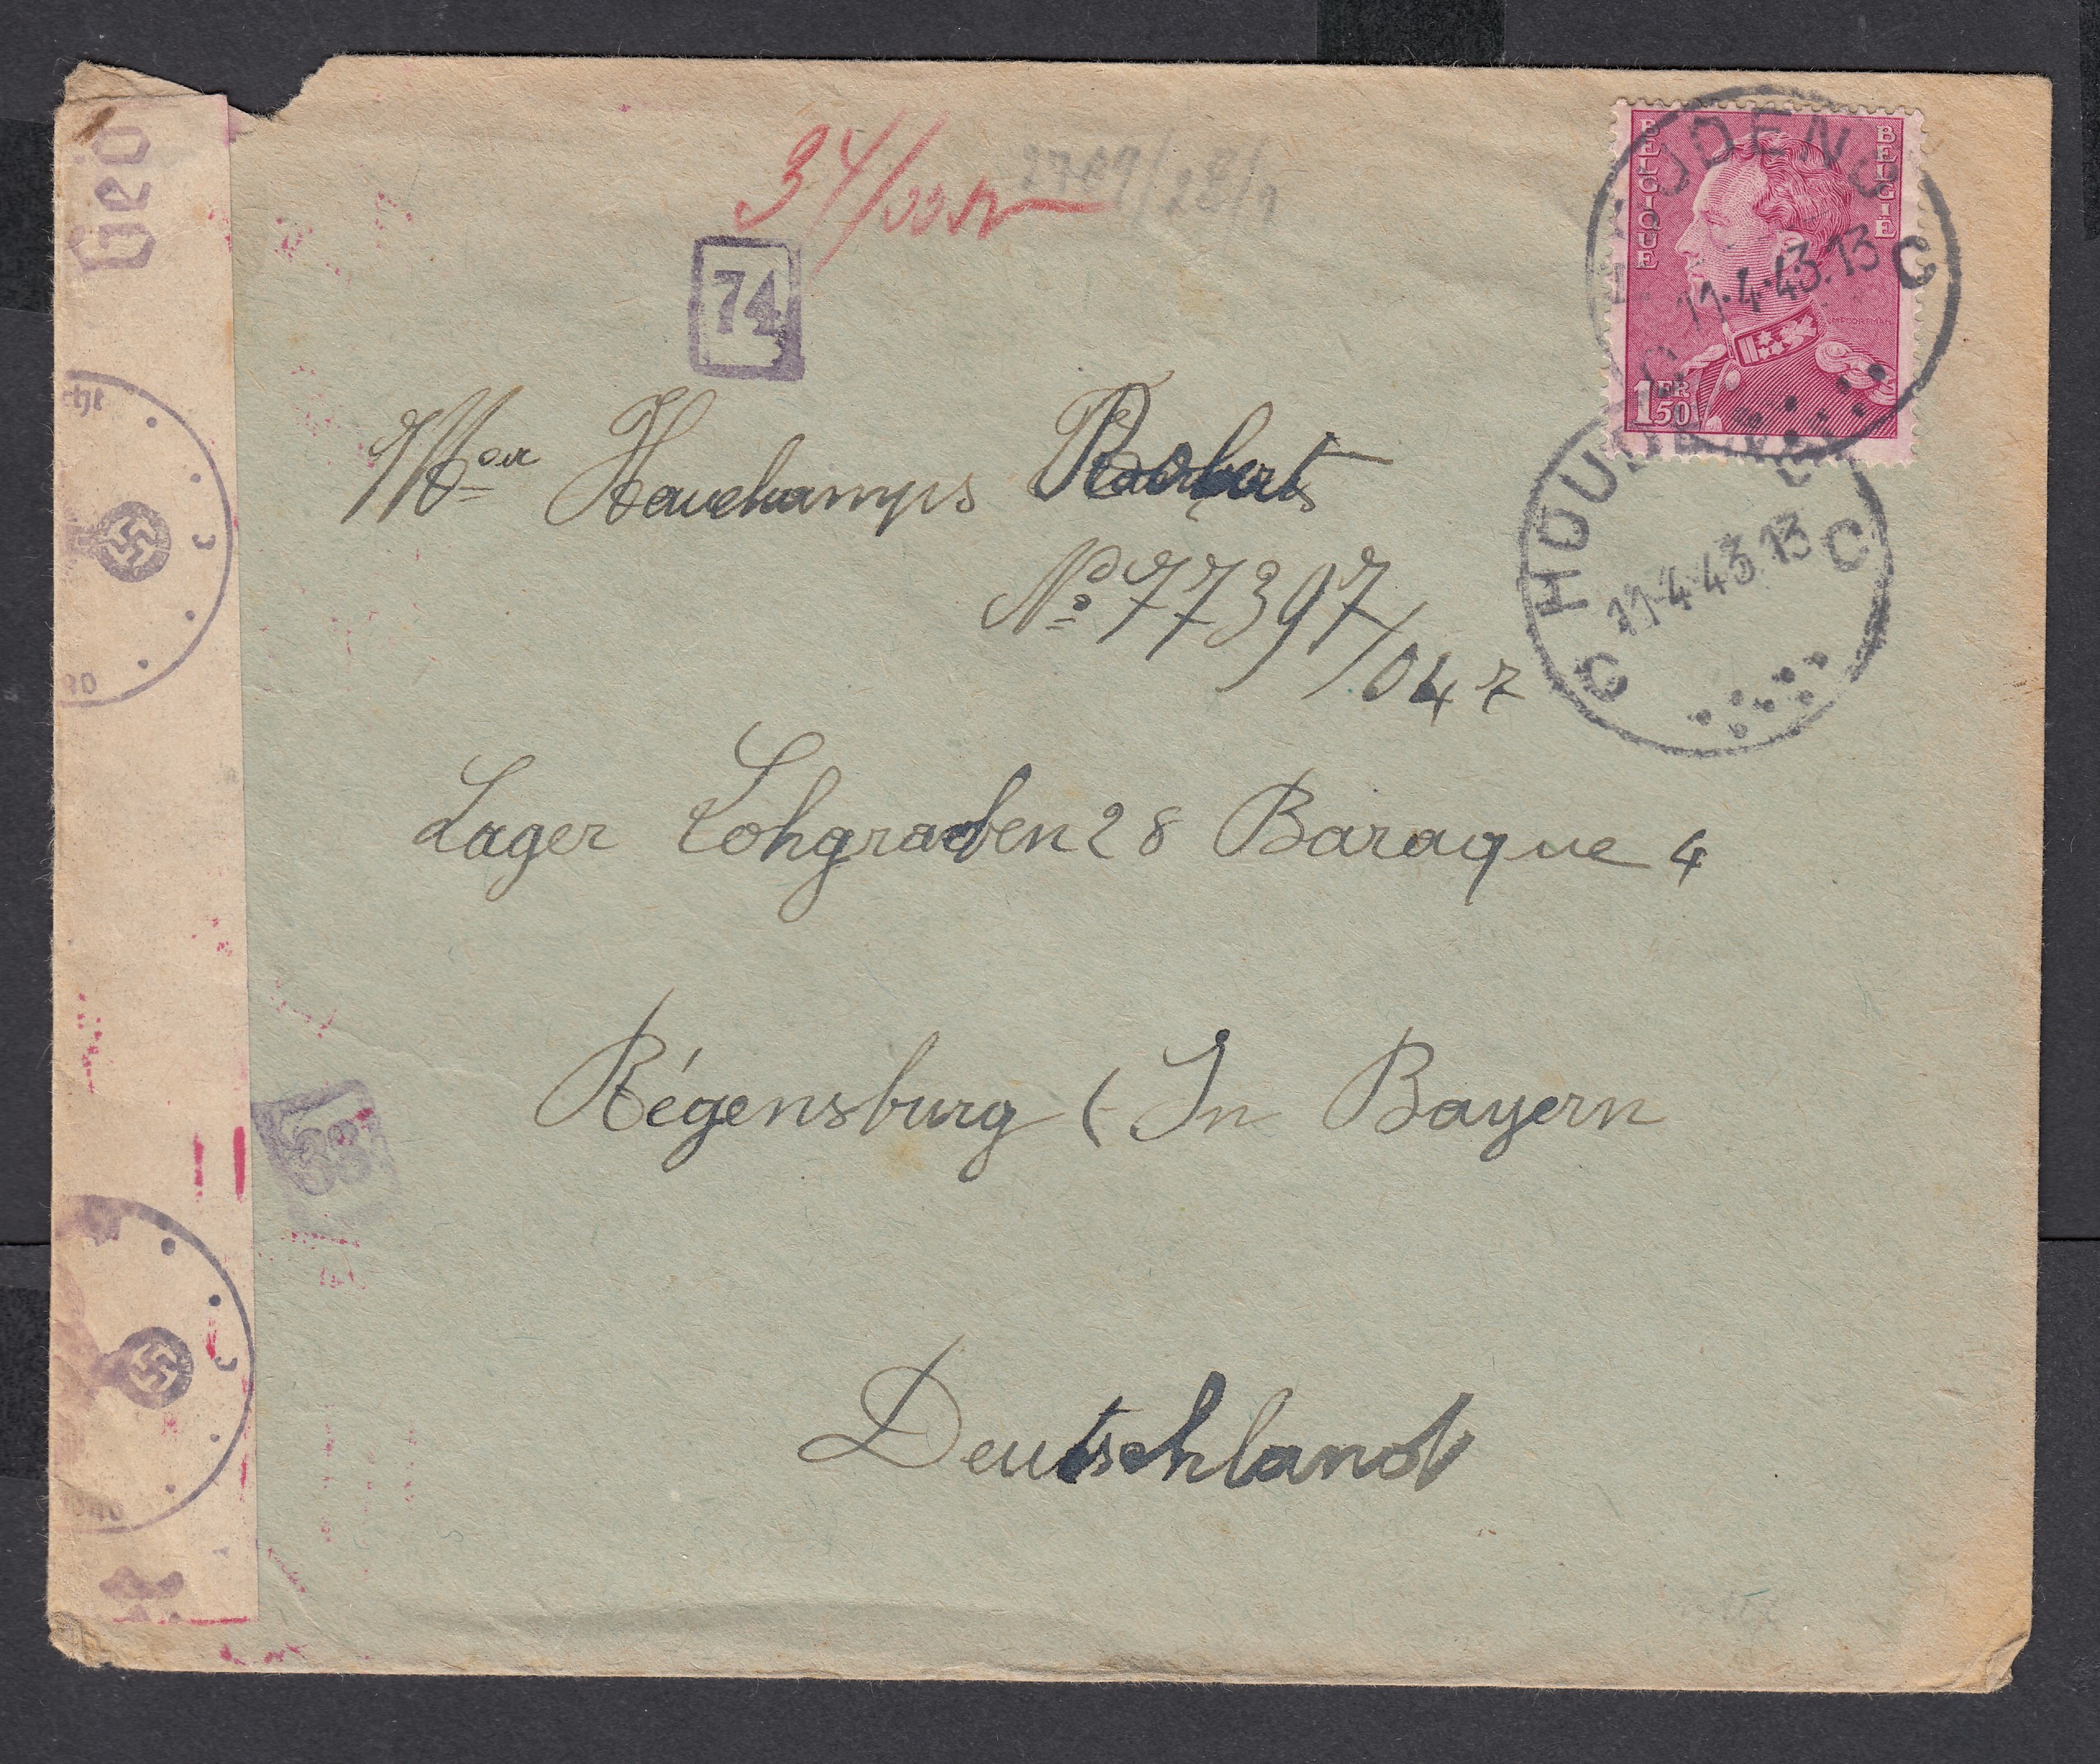 Geö
34/
2789/28/1
74
BELGIQUE
BELGIË
1FR50
HOUDENG
11-4-43.13
C
C
HOUDENG
11-4-43.13
C
C
Mr Hauchamps Robert
No 77397/047
Lager Lohgraben 28 Baraque 4
Régensburg ( In Bayern
Deutschland
33